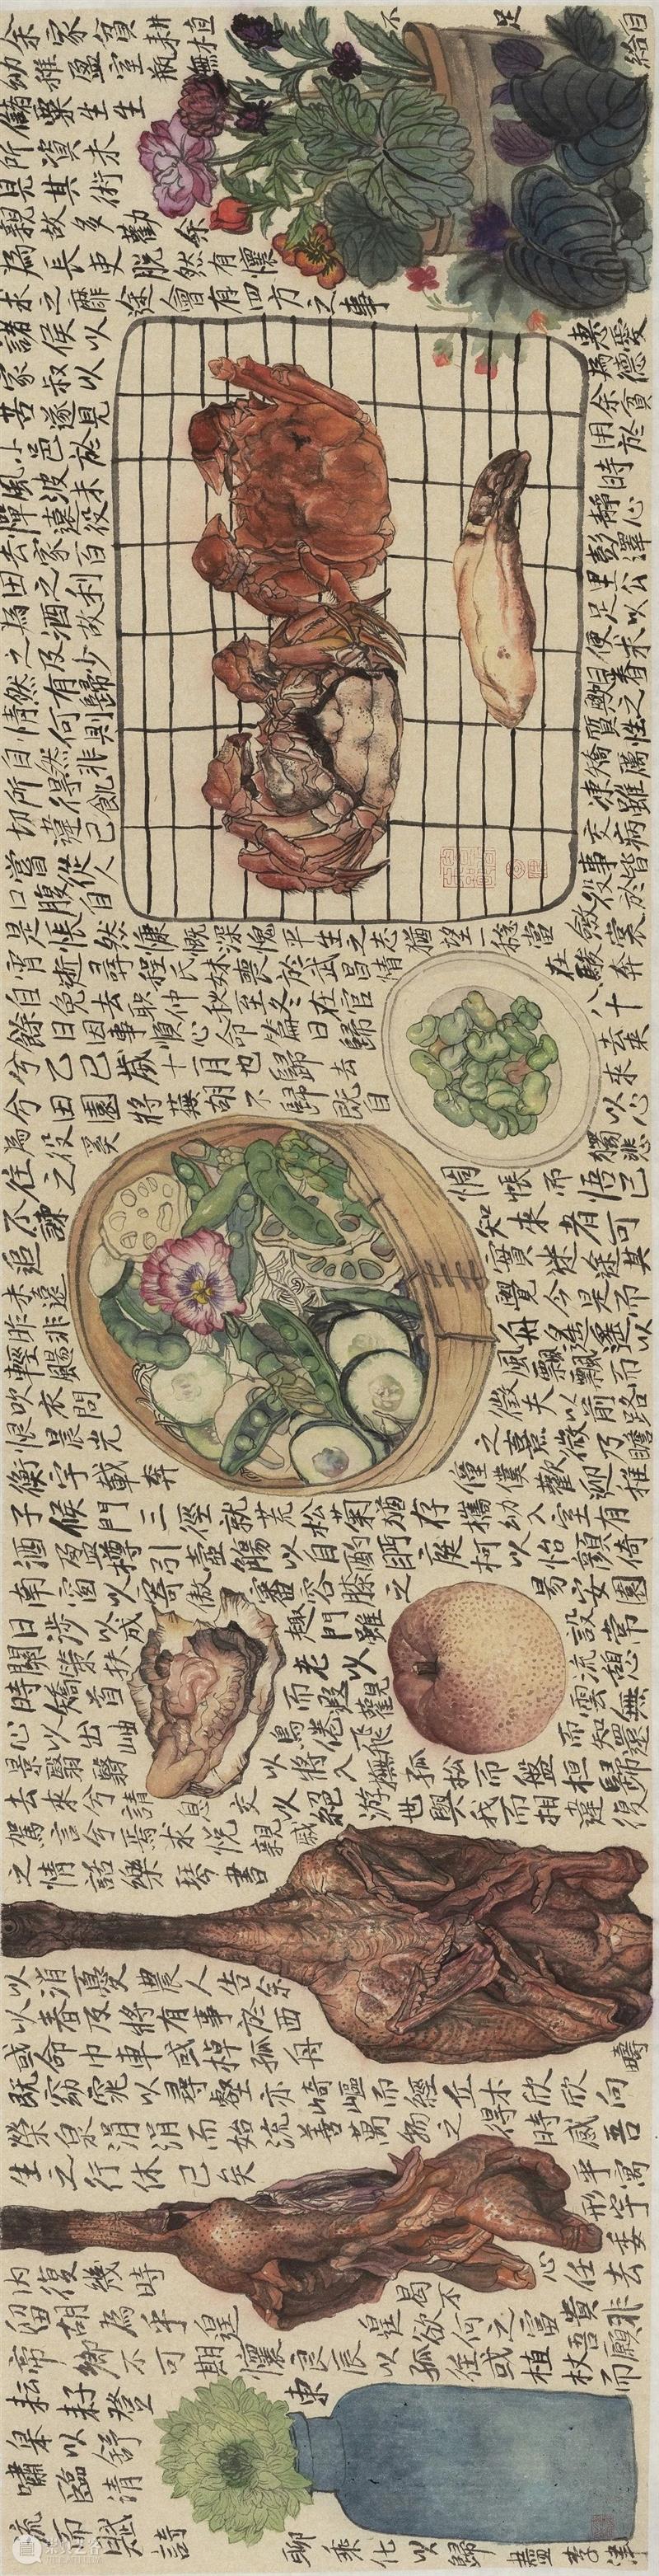 余家貧耕植不足自給
幼稚盈室瓶無
儲粟生生
所資未
見其術
親故多勸余
為長吏脫然有懷
求之靡途會有四方之事
諸侯以惠愛為德
家叔以余貧
苦遂見用於
小邑於時
風波未靜
憚遠役心
去家百里彭澤
田之利公
為酒足以
之及便求
然有故少日眷
情何則歸歟之
自然非質性
所得飢矯厲
切違己凍雖
嘗從人交病
口腹自事皆役於
是悵然慷慨深愧平生之志猶望一稔當斂裳
宵逝尋程氏妹喪於武昌情在駿奔
自免去職仲秋至冬在官八十
餘日因事順心命篇曰歸去來
兮乙巳歲十一月也歸去
兮田園將蕪胡不歸既自以心
為之役奚惆悵而獨悲
往不諫知來者悟已
追實迷途可
未遠覺今是其
昨非舟遙遙而
輕颺風飄飄以
吹衣徵夫以前路而
恨晨光之熹微乃瞻
衡宇載奔僮僕歡迎稚
子候門三徑就荒松菊猶存攜幼入室有
酒盈樽引壺觴以自酌眄庭柯以怡顏倚
南窗以寄傲審容膝之易安園
日涉以成趣門雖設常
關策扶老以流憩
時矯首而遐觀雲無
心以出岫鳥倦飛而知還
景翳翳以將入撫孤松而盤桓歸
去來兮請息交以絕游世與我而相違復
駕言兮焉求悅親戚
之情話樂琴書
以消憂農人告余
以春及將有事於西疇
或命巾車或棹孤舟
既窈窕以尋壑亦崎嶇而經丘木欣欣向
榮泉涓涓而始流善萬物之得時感吾
生之行休已矣
乎寓形宇
內復幾時委心任去
留胡為乎遑遑欲何之富貴非
帝鄉不可期懷良辰以孤往或植杖而
耘耔登東
皋以舒
嘯臨清
流而賦詩
聊乘化以歸盡
李津